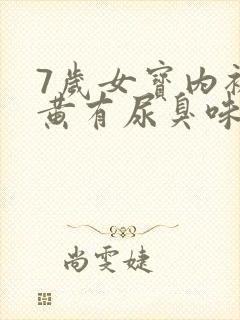 7歲女寶內
黃有尿臭味
尚雯婕